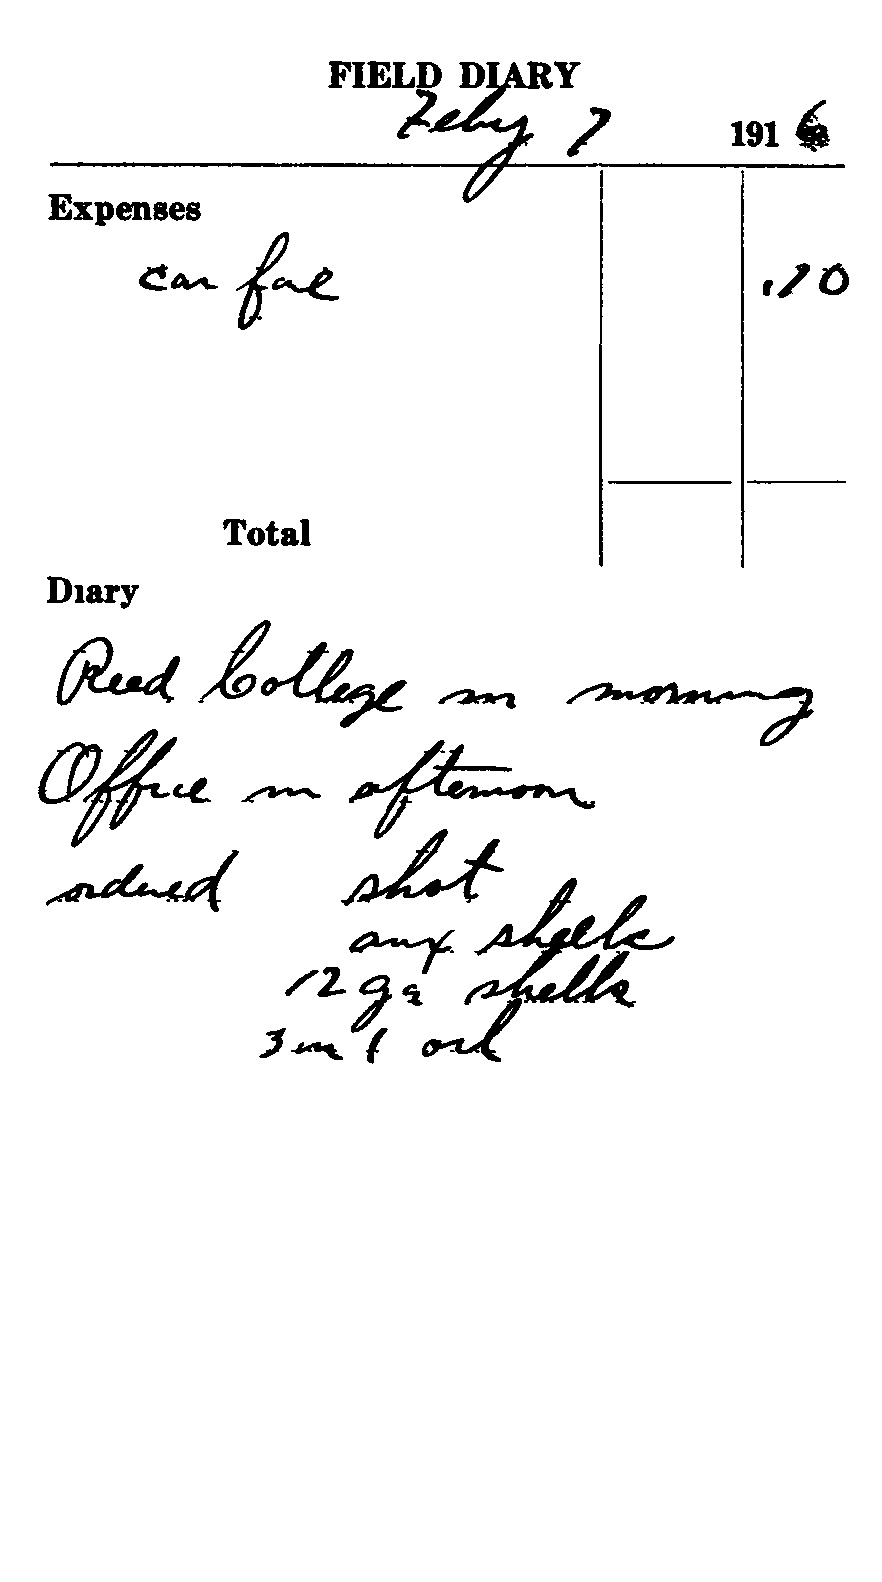 FIELD DIARY
Feby 7 1916
Expenses
car fare .10
Total
Diary
Reed College in morning
Office in afternoon
ordered shot
aux shells
12 ga shells
3 in 1 oil